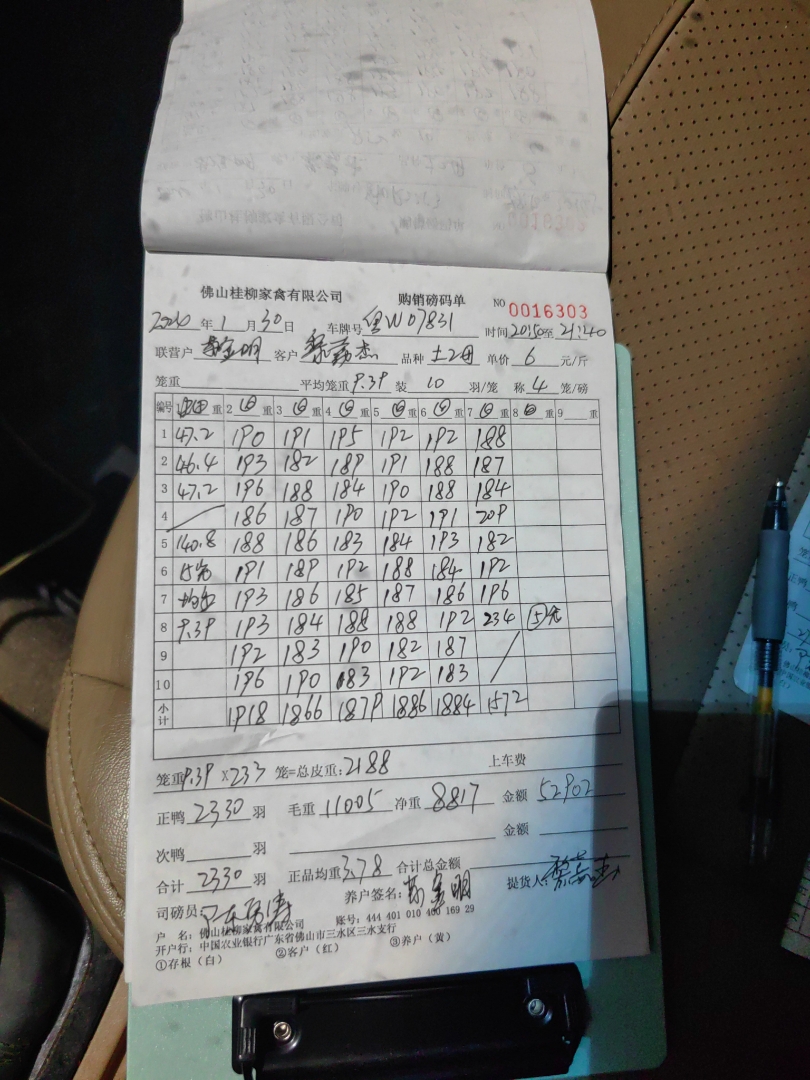 佛山桂柳家禽有限公司 购销磅码单 NO 0016303
2020 年 1 月 30 日 车牌号 粤W07831 时间 20:50 至 21:40
联营户 客户 品种 土2母 单价 6 元/斤
笼重 平均笼重 9.39 装 10 羽/笼 称 4 笼/磅
编号 重 2 重 3 重 4 重 5 重 6 重 7 重 8 重 9 重
1 47.2 190 191 195 192 192 188
2 46.4 193 182 189 191 188 187
3 47.2 196 188 184 190 188 184
4 186 187 190 192 191 209
5 140.8 188 186 183 184 193 182
6 15笼 191 189 192 188 184 192
7 均重 193 186 185 187 186 196
8 9.39 193 184 188 188 192 234 ⑤笼
9 192 183 190 182 187
10 196 190 183 192 183
小计 1918 1866 1879 1886 1884 1572
笼重 9.39 ×233 笼=总皮重: 2188 上车费
正鸭 2330 羽 毛重 11005 净重 8817 金额 52902
次鸭 羽 金额
合计 2330 羽 正品均重 3.78 合计总金额
司磅员: 养户签名: 提货人:
户 名: 佛山桂柳家禽有限公司 账号: 444 401 010 400 169 29
开户行: 中国农业银行广东省佛山市三水区三水支行
①存根（白） ②客户（红） ③养户（黄）